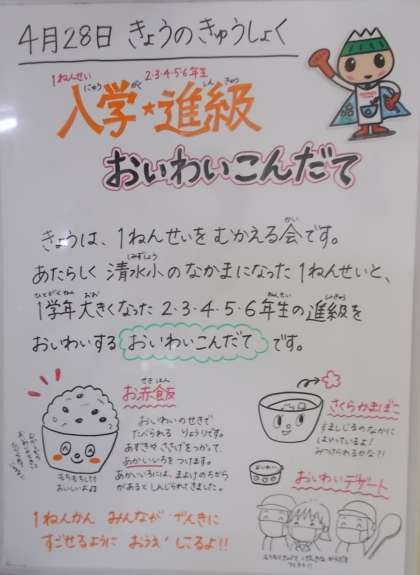 4月28日 きょうのきゅうしょく
1ねんせい 2・3・4・5・6年生
入学★進級
にゅう がく しん きゅう
おいわいこんだて
きょうは、1ねんせいをむかえる会です。
かい
あたらしく 清水小のなかまになった1ねんせいと、
しみずしょう
1学年大きくなった 2・3・4・5・6年生の進級を
ひとがくねん おお ねんせい しんきゅう
おいわいする おいわいこんだて です。
お赤飯
せき はん
おいわいのせきで
たべられる りょうりです。
あずきや ささげをつかって、
あかいいろをつけます。
あかいいろには、まよけのちから
があると しんじられてきました。
もちもちして
おいしいよ♪
さくらかまぼこ
すましじるのなかに
はいっているよ!
みつけられるかな?!
おいわいデザート
おいわい
1ねんかん みんなが げんきに
すごせるように おうえんしてるよ!!